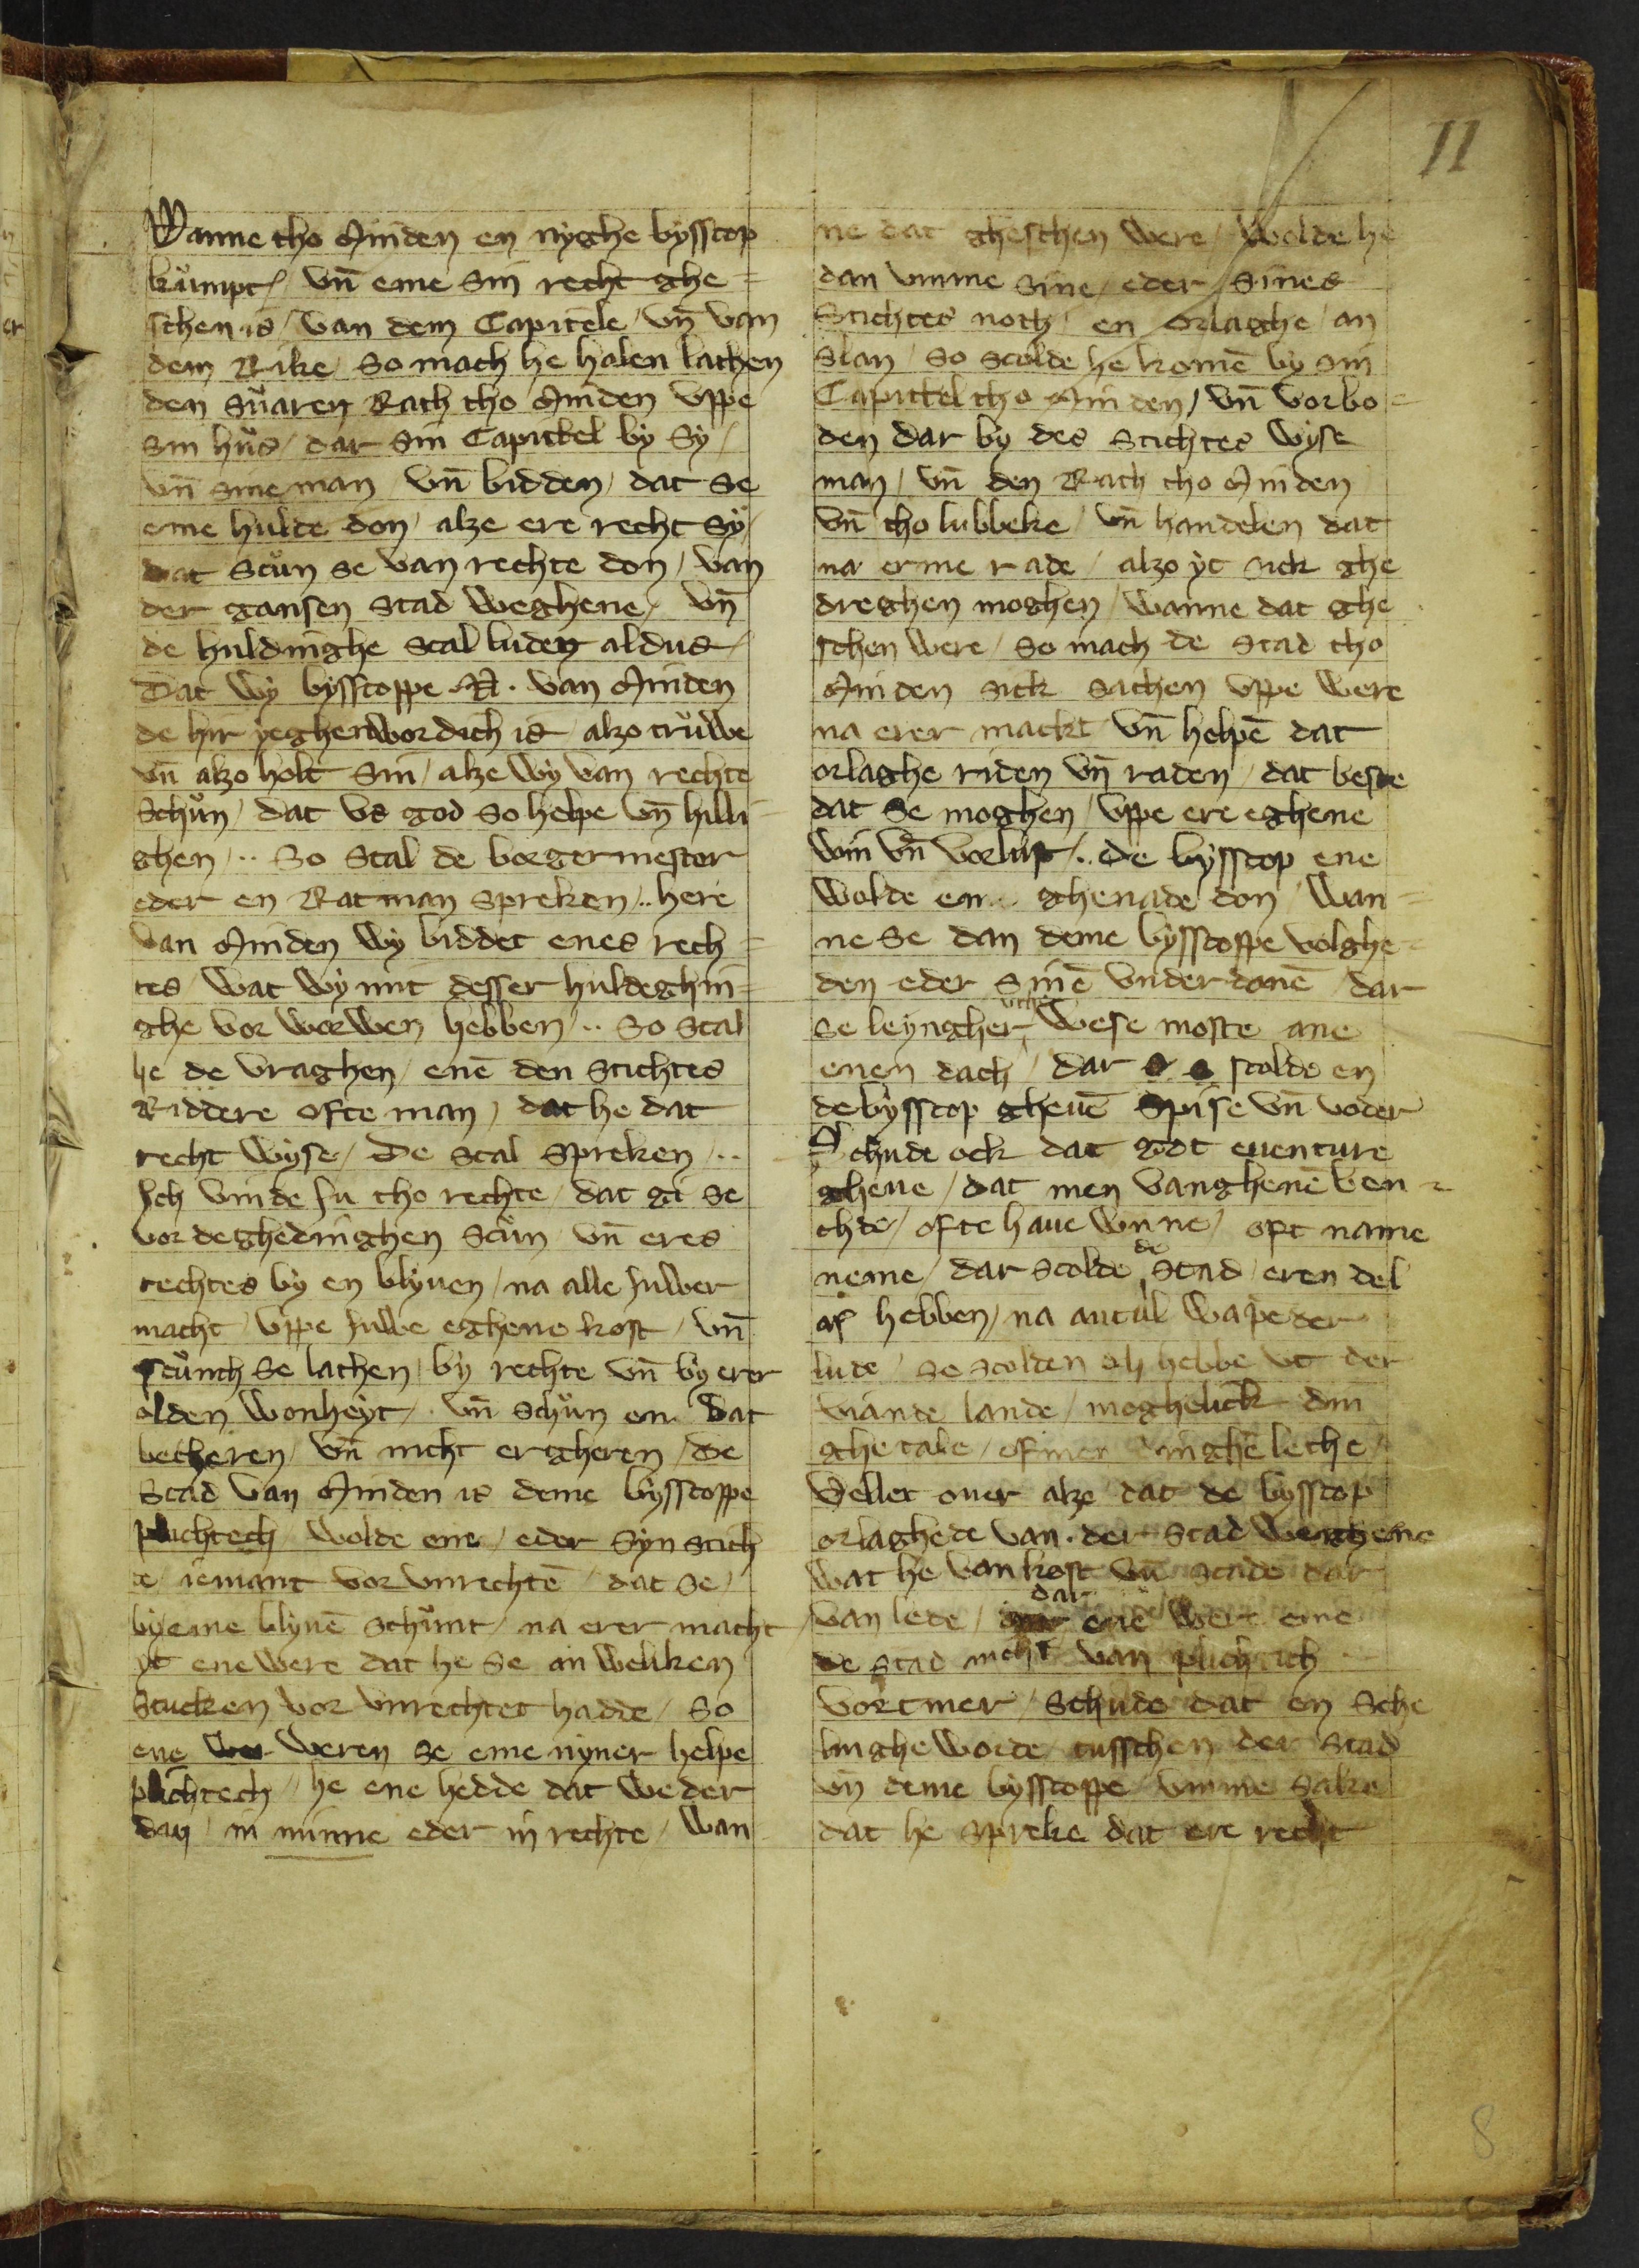 11
Wanne tho Minden en nyghe bysscop
kůmpt / vn̄ eme sin recht ghe=
schen is / van dem Capitele / vn̄ van
dem Rike / So mach he halen lathen
den Sůaren Rath tho Minden vppe
sin hůs / dar sin Capittel by sy /
vn̄ sine man / vn̄ bidden / dat se
eme hulde don / alze ere recht sy /
dat scůn se van rechte don / van
der gansen Stad weghene / vn̄
de huldinghe scal luden aldus /
Dat wy bysscoppe .N. van Minden
de hir yeghenwordich is alzo trůwe
vn̄ alzo holt sin / alze wy van rechte
schůn / dat vs god so helpe vn̄ hilli=
ghen / .. So scal de borgermester
eder en Ratman spreken / .. here
van Minden wy biddet enes rech=
tes / wat wy mit desser huldeghin=
ghe vor worwen hebben / .. So scal
he de vraghen / enē den Stichtes
Riddere ofte man / dat he dat
recht wyse / De scal spreken / ..
Ich vinde Iu tho rechte / dat gi se
vordeghedinghen scůn / vn̄ eres
rechtes by en blyuen / na alle Iuwer
macht / vppe Iuwe eghene kost / vn̄
scůnth se lathen / by rechte vn̄ by erer
olden wonheyt / . vn̄ schůn em dat
betheren / vn̄ nicht ergheren / De
Stad van Minden is deme bysscoppe
plichtech / wolde eme / eder syn stich
te / iemant vor vnrechtē / dat se /
by eme blyuē schůnt / na erer macht
yt ene were dat he se an welken
stucken vor vnrechtet hadde / So
ene weren se eme nyner helpe
plichtech / he ene hedde dat weder
dan / in minne eder in rechte / wan
ne dat gheschen were / wolde he
dan vmme sine / eder / sines
Stichtes noth / en orlaghe / an
slan / so scolde he komē by sin
Capittel tho Minden / vn̄ vorbo=
den dar by des Stichtes wyse
man / vn̄ den Rath tho Minden
vn̄ tho lubbeke / vn̄ handelen dat
na erme rade / alzo yt sick ghe
dreghen moghen / wanne dat ghe
schen were / so mach de Stad tho
Minden sick sathen vppe were
na erer mackt / vn̄ helpē dat
orlaghe riden vn̄ raden / dat beste
dat se moghen / vppe ere eghene
win vn̄ vorlust / .. De bysscop ene
wolde em ghenade don / wan=
ne se dan deme bysscoppe volghe=
den eder sinē vnderdanē / dar
se leyngher vthe wese moste ane
enen dach / dar scolde en
de bysscop gheuē spise vn̄ voder
Schude ock dat got euenture
gheue / dat men vanghenē ven=
ghde / ofte haue wnne / oft name
neme / dar scolde de Stad / eren del
af hebben / na antal wapeder
lude / se scolden hebbe vt der
viande lande / moghelick din
ghetale / of men dinghē lethe /
vellet ouer alze dat de bysscop
orlaghede van der Stad weghene
wat he van kost vn̄ scade dar
van lede / dar ene wert eme
de Stad nicht van plichtich
vortmer / Schude dat en sche
linghe worde / tusschen der Stad
vn̄ deme bysscoppe / vmme sake
dat he spreke dat ere recht
8